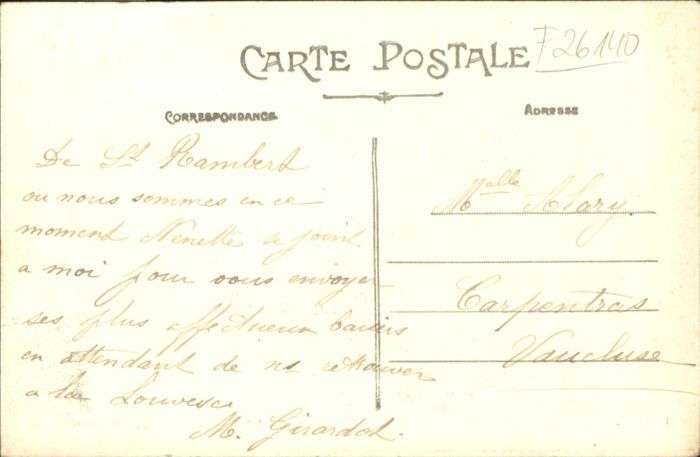 CARTE POSTALE
F26140
CORRESPONDANCE
ADRESSE
De St Rambert
ou nous sommes en ce
moment Nenette se joint
a moi pour vous envoyer
ses plus affectueux baisers
en attendant de ns retrouver
a la Louvesc
M. Girardot.
Melle Alary.
Carpentras
Vaucluse